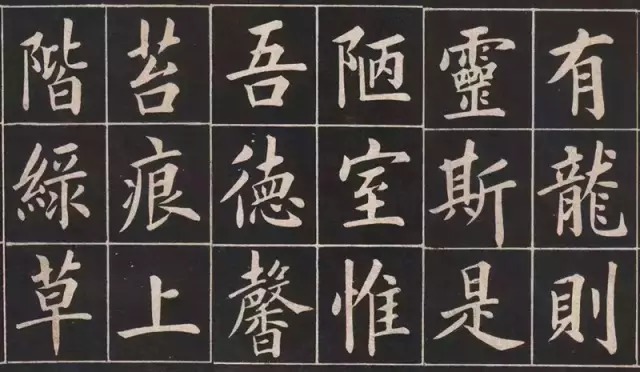 有龍則
靈斯是
陋室惟
吾德馨
苔痕上
階綠草